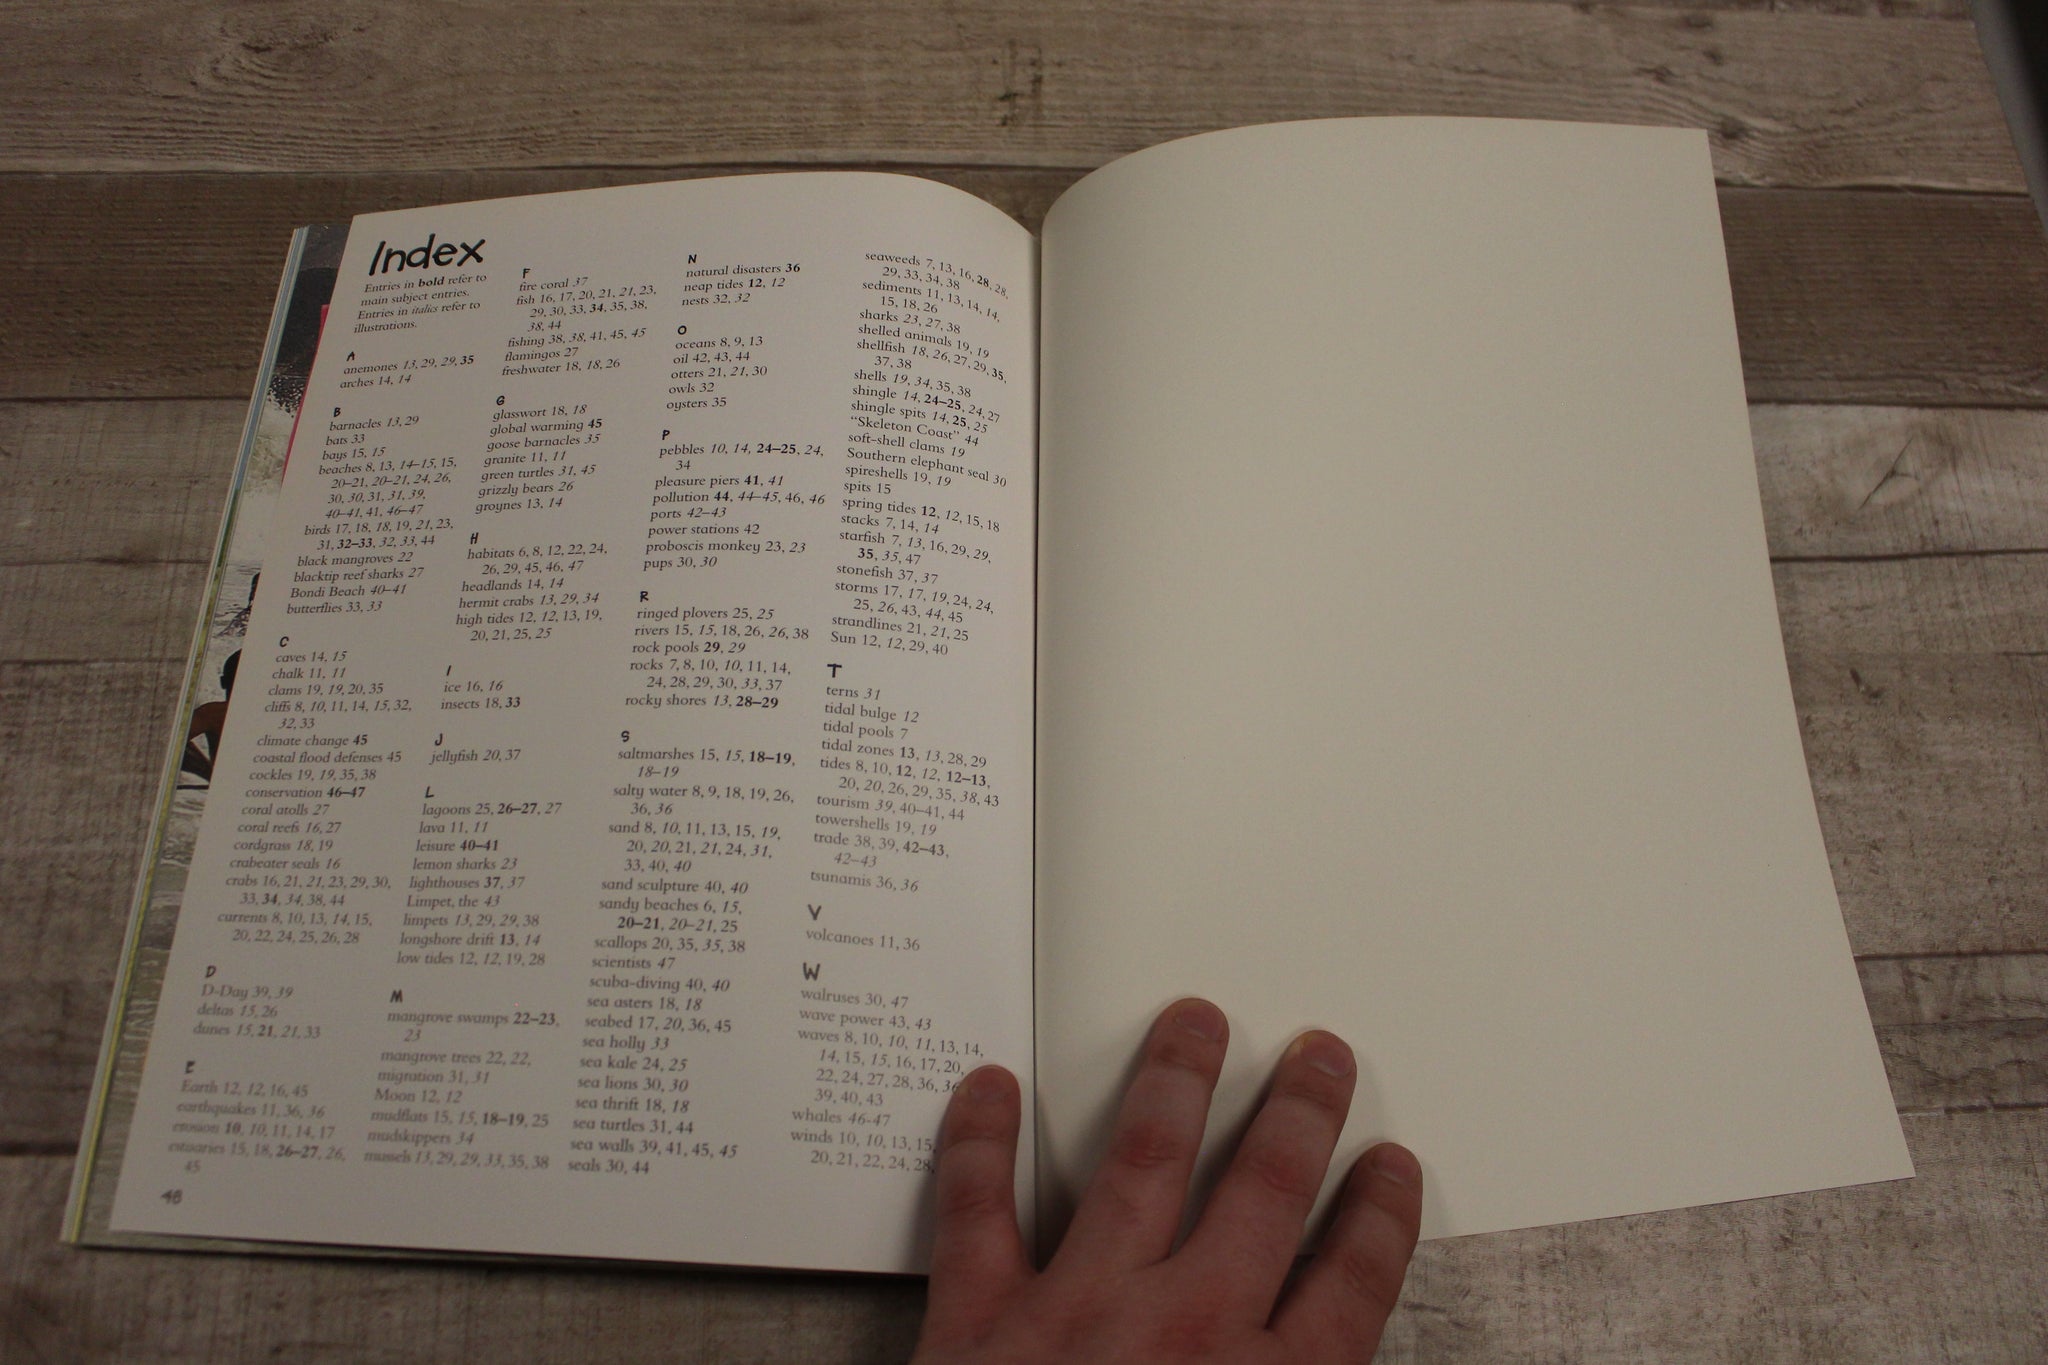 Index
Entries in bold refer to
main subject entries.
Entries in italics refer to
illustrations.
A
anemones 13, 29, 29, 35
arches 14, 14
B
barnacles 13, 29
bats 33
bays 15, 15
beaches 8, 13, 14–15, 15,
20–21, 20–21, 24, 26,
30, 30, 31, 31, 39,
40–41, 41, 46–47
birds 17, 18, 18, 19, 21, 23,
31, 32–33, 32, 33, 44
black mangroves 22
blacktip reef sharks 27
Bondi Beach 40–41
butterflies 33, 33
C
caves 14, 15
chalk 11, 11
clams 19, 19, 20, 35
cliffs 8, 10, 11, 14, 15, 32,
32, 33
climate change 45
coastal flood defenses 45
cockles 19, 19, 35, 38
conservation 46–47
coral atolls 27
coral reefs 16, 27
cordgrass 18, 19
crabeater seals 16
crabs 16, 21, 21, 23, 29, 30,
33, 34, 34, 38, 44
currents 8, 10, 13, 14, 15,
20, 22, 24, 25, 26, 28
D
D-Day 39, 39
deltas 15, 26
dunes 15, 21, 21, 33
E
Earth 12, 12, 16, 45
earthquakes 11, 36, 36
erosion 10, 10, 11, 14, 17
estuaries 15, 18, 26–27, 26,
45
48
F
fire coral 37
fish 16, 17, 20, 21, 21, 23,
29, 30, 33, 34, 35, 38,
38, 44
fishing 38, 38, 41, 45, 45
flamingos 27
freshwater 18, 18, 26
G
glasswort 18, 18
global warming 45
goose barnacles 35
granite 11, 11
green turtles 31, 45
grizzly bears 26
groynes 13, 14
H
habitats 6, 8, 12, 22, 24,
26, 29, 45, 46, 47
headlands 14, 14
hermit crabs 13, 29, 34
high tides 12, 12, 13, 19,
20, 21, 25, 25
I
ice 16, 16
insects 18, 33
J
jellyfish 20, 37
L
lagoons 25, 26–27, 27
lava 11, 11
leisure 40–41
lemon sharks 23
lighthouses 37, 37
Limpet, the 43
limpets 13, 29, 29, 38
longshore drift 13, 14
low tides 12, 12, 19, 28
M
mangrove swamps 22–23,
23
mangrove trees 22, 22,
migration 31, 31
Moon 12, 12
mudflats 15, 15, 18–19, 25
mudskippers 34
mussels 13, 29, 29, 33, 35, 38
N
natural disasters 36
neap tides 12, 12
nests 32, 32
O
oceans 8, 9, 13
oil 42, 43, 44
otters 21, 21, 30
owls 32
oysters 35
P
pebbles 10, 14, 24–25, 24,
34
pleasure piers 41, 41
pollution 44, 44–45, 46, 46
ports 42–43
power stations 42
proboscis monkey 23, 23
pups 30, 30
R
ringed plovers 25, 25
rivers 15, 15, 18, 26, 26, 38
rock pools 29, 29
rocks 7, 8, 10, 10, 11, 14,
24, 28, 29, 30, 33, 37
rocky shores 13, 28–29
S
saltmarshes 15, 15, 18–19,
18–19
salty water 8, 9, 18, 19, 26,
36, 36
sand 8, 10, 11, 13, 15, 19,
20, 20, 21, 21, 24, 31,
33, 40, 40
sand sculpture 40, 40
sandy beaches 6, 15,
20–21, 20–21, 25
scallops 20, 35, 35, 38
scientists 47
scuba-diving 40, 40
sea asters 18, 18
seabed 17, 20, 36, 45
sea holly 33
sea kale 24, 25
sea lions 30, 30
sea thrift 18, 18
sea turtles 31, 44
sea walls 39, 41, 45, 45
seals 30, 44
seaweeds 7, 13, 16, 28, 28,
29, 33, 34, 38
sediments 11, 13, 14, 14,
15, 18, 26
sharks 23, 27, 38
shelled animals 19, 19
shellfish 18, 26, 27, 29, 35,
37, 38
shells 19, 34, 35, 38
shingle 14, 24–25, 24, 27
shingle spits 14, 25, 25
“Skeleton Coast” 44
soft-shell clams 19
Southern elephant seal 30
spireshells 19, 19
spits 15
spring tides 12, 12, 15, 18
stacks 7, 14, 14
starfish 7, 13, 16, 29, 29,
35, 35, 47
stonefish 37, 37
storms 17, 17, 19, 24, 24,
25, 26, 43, 44, 45
strandlines 21, 21, 25
Sun 12, 12, 29, 40
T
terns 31
tidal bulge 12
tidal pools 7
tidal zones 13, 13, 28, 29
tides 8, 10, 12, 12, 12–13,
20, 20, 26, 29, 35, 38, 43
tourism 39, 40–41, 44
towershells 19, 19
trade 38, 39, 42–43,
42–43
tsunamis 36, 36
V
volcanoes 11, 36
W
walruses 30, 47
wave power 43, 43
waves 8, 10, 10, 11, 13, 14,
14, 15, 15, 16, 17, 20,
22, 24, 27, 28, 36, 36
39, 40, 43
whales 46-47
winds 10, 10, 13, 15
20, 21, 22, 24, 28,